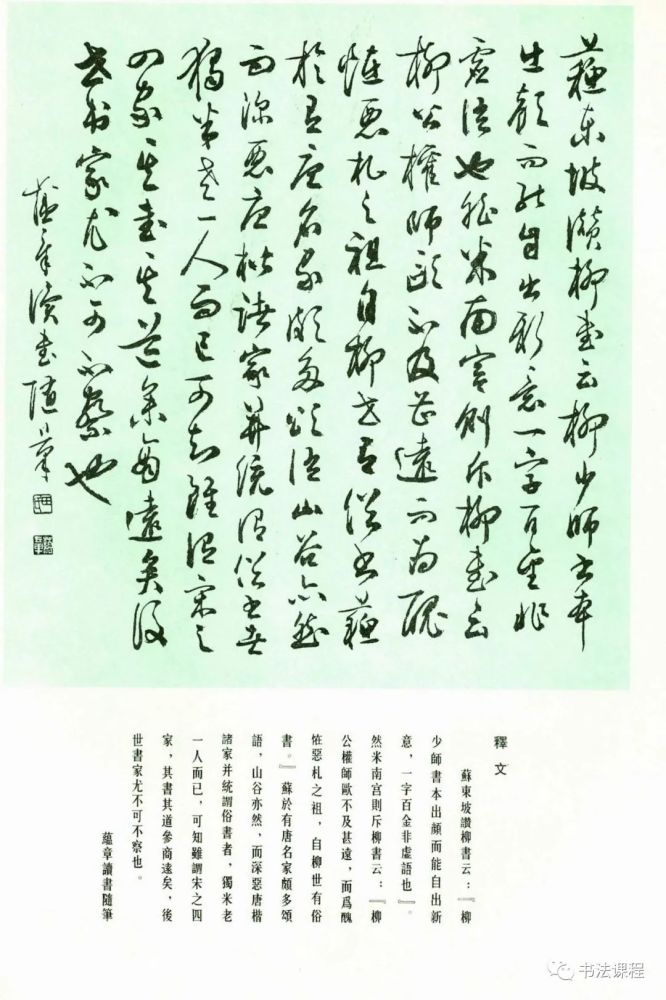 蘇東坡讚柳書云柳少師書本
出顏而能自出新意一字百金非
虛語也然米南宮則斥柳書云
柳公權師歐不及甚遠而為醜
恠惡札之祖自柳世有俗書蘇
於有唐名家頗多頌語山谷亦然
而深惡唐楷諸家并統謂俗書者
獨米老一人而已可知雖謂宋之
四家其書其道參商遠矣後
世書家尤不可不察也
蘊章讀書隨筆
釋文
蘇東坡讚柳書云：『柳
少師書本出顏而能自出新
意，一字百金非虛語也』。
然米南宮則斥柳書云：『柳
公權師歐不及甚遠，而爲醜
恠惡札之祖，自柳世有俗
書。』蘇於有唐名家頗多頌
語，山谷亦然，而深惡唐楷
諸家并統謂俗書者，獨米老
一人而已，可知雖謂宋之四
家，其書其道參商遠矣，後
世書家尤不可不察也。
蘊章讀書隨筆
书法课程